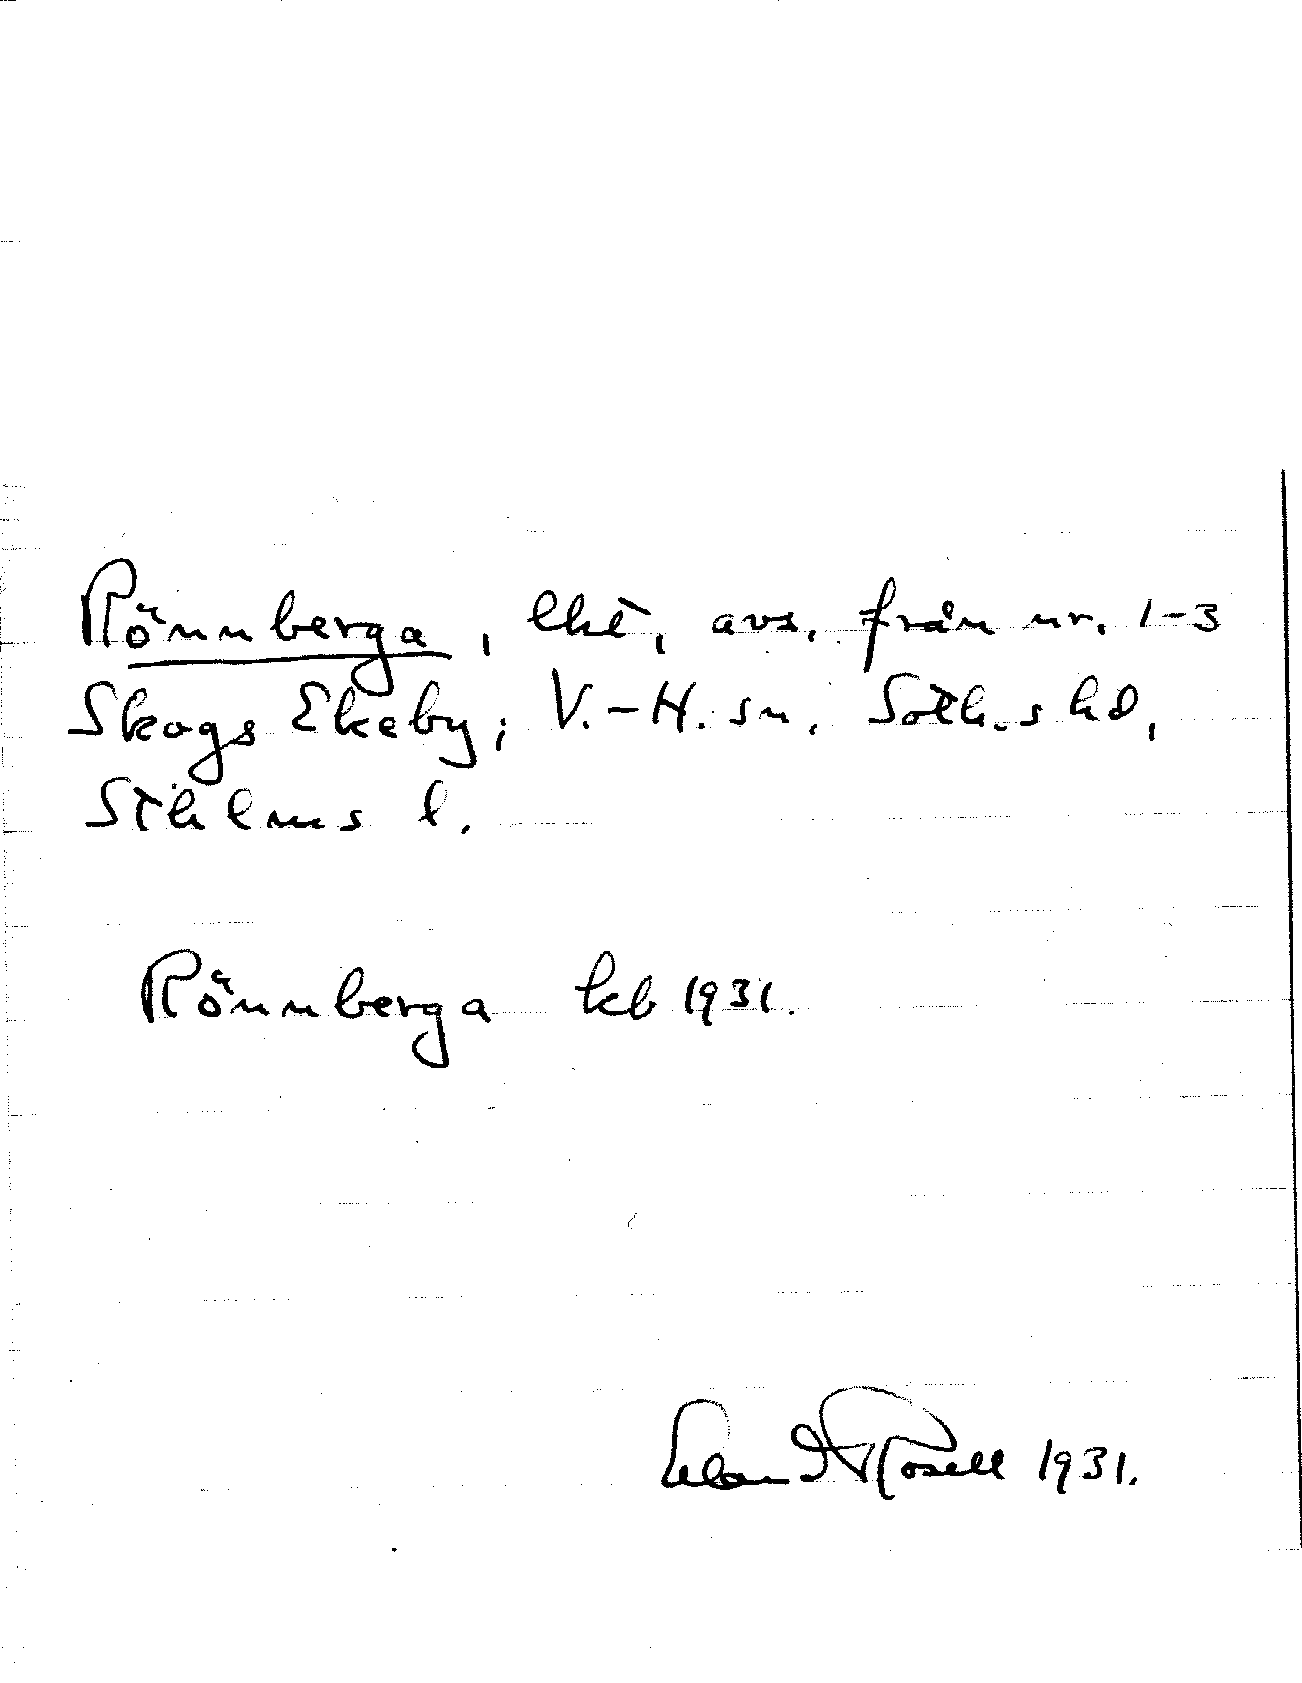 Rönnberga, lht, avs. från nr. 1-3
Skogs Ekeby; V.-H. sn. Soth.s hd,
Sthlms l.
Rönnberga kb 1931.
Rosell 1931.